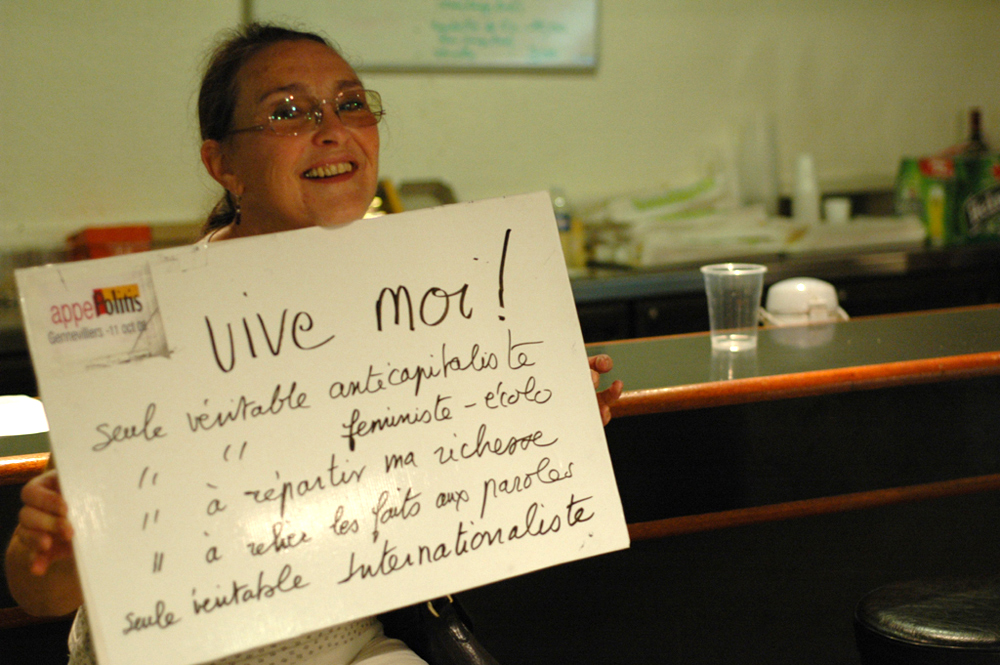 appel Politis
Gennevilliers - 11 oct 08
VIVE MOI !
seule véritable anticapitaliste
" " féministe - écolo
" à répartir ma richesse
" à relier les faits aux paroles
seule véritable Internationaliste